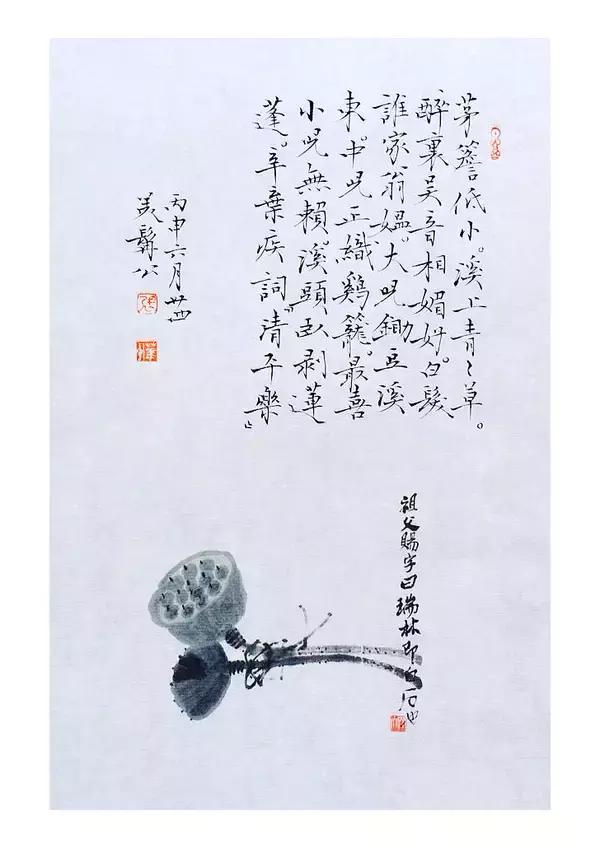 茅簷低小。溪上青〻草。
醉裏吴音相媚好。白髮
誰家翁媼。大兒鋤豆溪
東。中兒正織鷄籠。最喜
小兒無賴。溪頭臥剥蓮
蓬。辛棄疾詞『清平樂』
丙申六月廿四
美髯公
祖父賜字曰瑞林即白石也